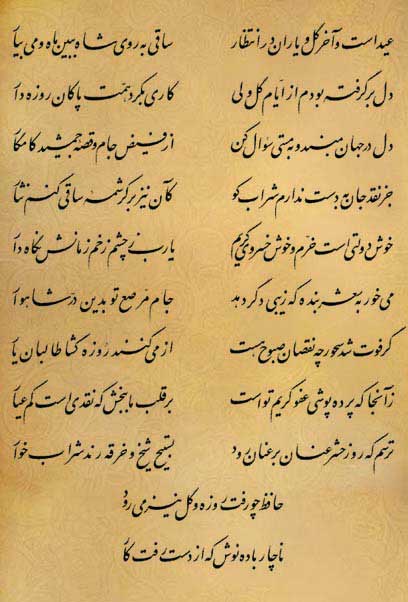 عید است و آخر گل و یاران در انتظار ساقی به روی شاه ببین ماه و می بیار
دل برگرفته بودم از ایام گل ولی کاری بکرد همت پاکان روزه دار
دل در جهان مبند و به مستی سؤال کن از فیض جام و قصه جمشید کامکار
جز نقد جان به دست ندارم شراب کو کآن نیز بر کرشمه ساقی کنم نثار
خوش دولتی است خرم و خوش خسروی کریم یارب ز چشم زخم زمانش نگاه دار
می خور به شعر بنده که زیبی دگر دهد جام مرصع تو بدین در شاهوار
گر فوت شد سحور چه نقصان صبوح هست از می کنند روزه گشا طالبان یار
زآنجا که پرده پوشی عفو کریم تو است بر قلب ما ببخش که نقدی است کم عیار
ترسم که روز حشر عنان بر عنان رود تسبیح شیخ و خرقه رند شراب خوار
حافظ چو رفت روزه و گل نیز می رود
ناچار باده نوش که از دست رفت کار